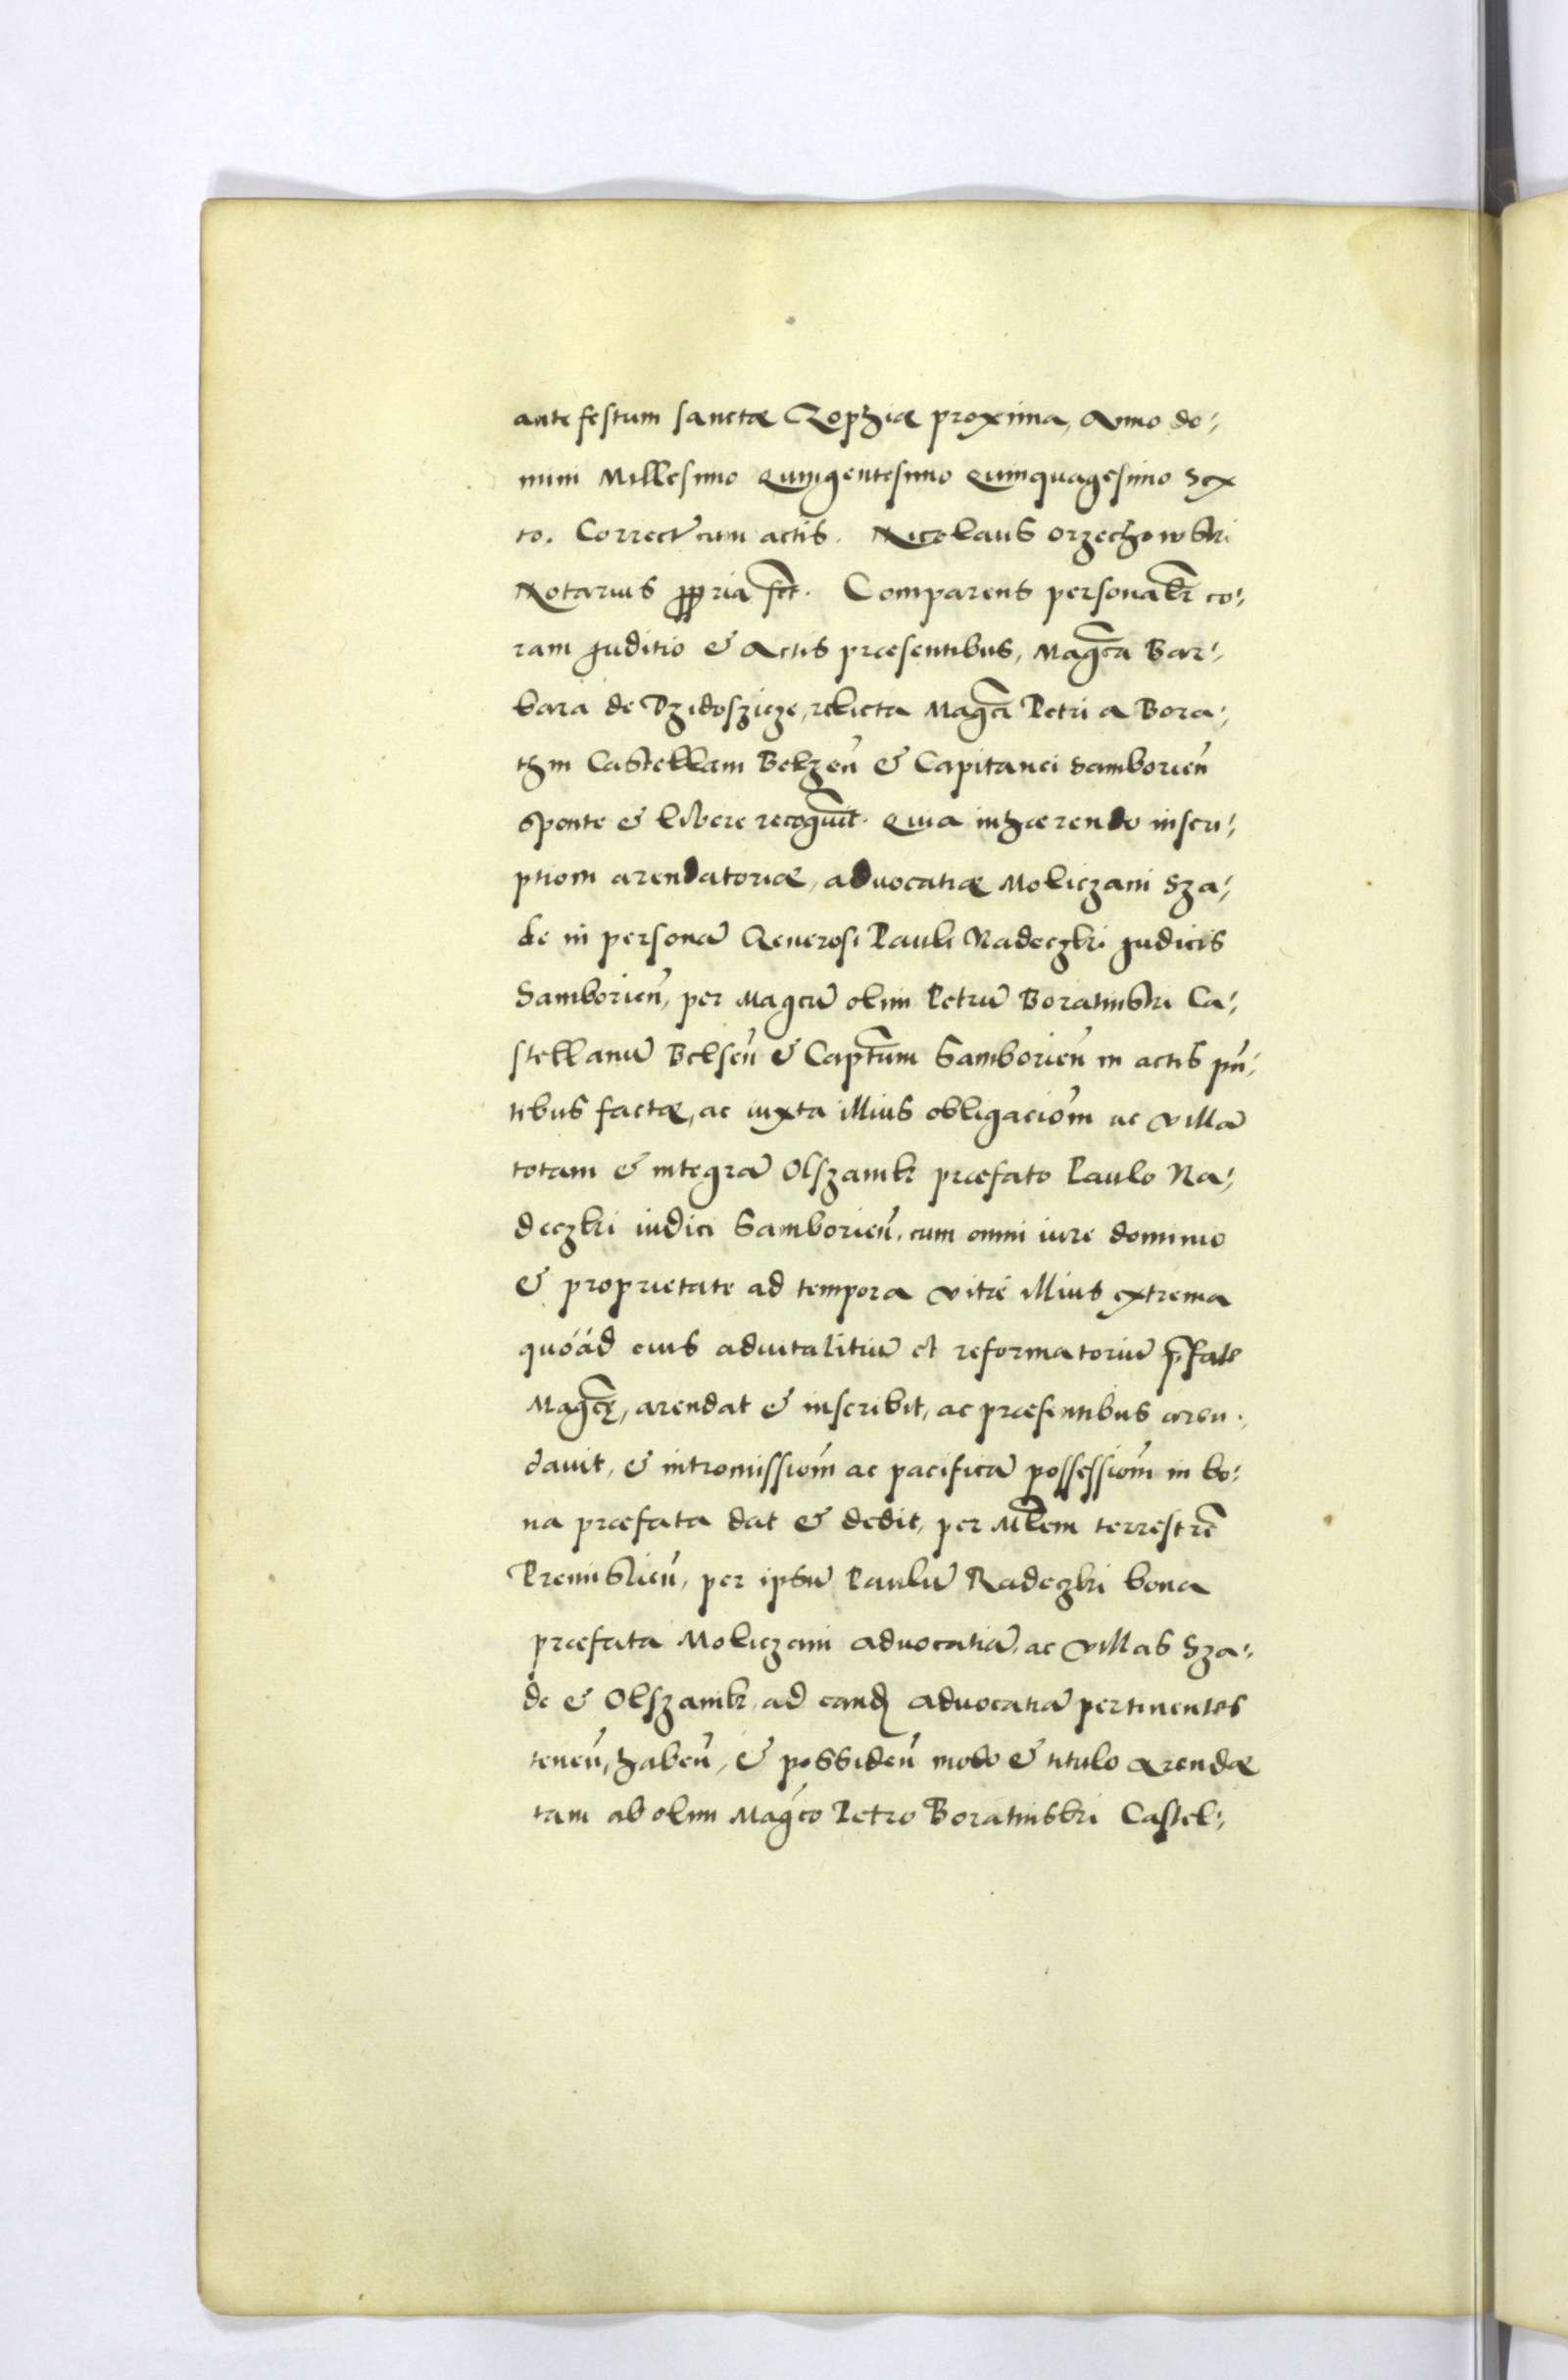 ante festum sanctæ Zophiæ proxima, Anno do-
mini Millesimo Quingentesimo Quinquagesimo Sex
to. Correctũ cum actis. Nicolaus Orzechowski
Notarius ppria sct. Comparens personalr̃ co-
ram Juditio & Actis præsentibus, Magcã Bar-
bara de Dzidoszicze, relicta Magcĩ Petri a Bora-
thin Castellani Belzeñ & Capitanei Samborieñ
sponte & libere recognvit. Quia inhærendo inscri-
ptiom̃ arendatoriæ, advocatiæ Moliczani Sza-
de in personã Generosi Pauli Radeczki Judicis
Samborieñ, per Magcũ olim Petrũ Boratinski Ca-
stellanũ Belseñ & Captm̃ Samborieñ in actis pñ-
tibus factæ, ac iuxta illius obligaciom̃ ac villã
totam & integrã Olszanik præfato Paulo Ra-
deczki iudici Samborieñ, cum omni iure dominio
& proprietate ad tempora vitæ illius extrema
quóád eius advitalitiũ et reformatoriũ p̃fate
Magcę̃, arendat & inscribit, ac præsentibus aren-
davit, & intromissiom̃ ac pacificã possessiom̃ in bo-
na præfata dat & dedit, per Mlem̃ terrestrẽ
Premislieñ, per ipsũ Paulũ Radeczki bona
præfata Moliczani advocatiã, ac villas Sza-
de & Olszanik, ad eand advocatiã pertinentes
teneñ, habeñ, & possideñ modo & titulo Arendæ
tam ab olim Magco Petro Boratinski Castel-